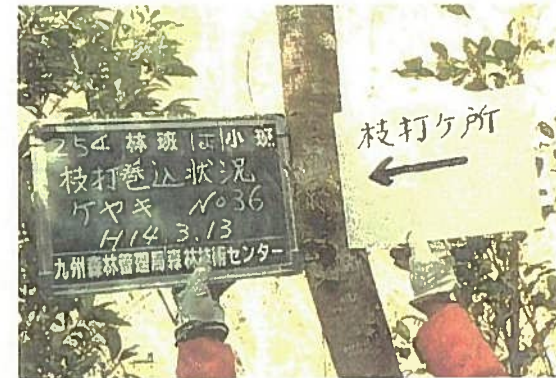 254 林班 1は 小班
枝打巻込状況
ケヤキ No36
H14.3.13
九州森林管理局森林技術センター
枝打ケ所